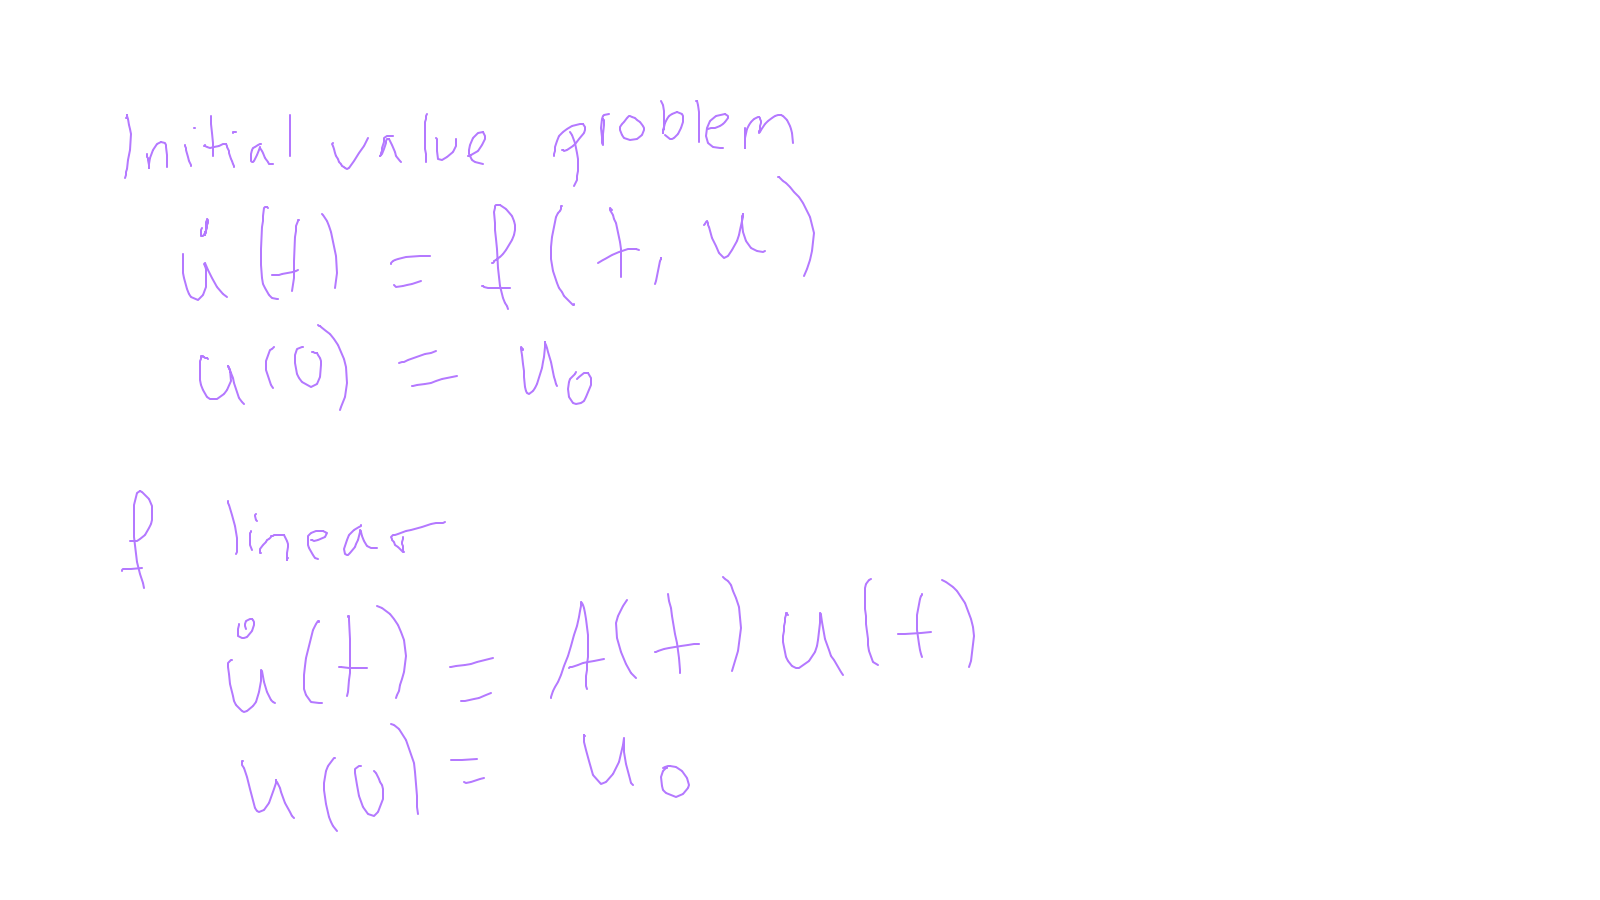 Initial value problem
u̇(t) = f(t, u)
u(0) = u₀
f linear
u̇(t) = A(t) u(t)
u(0) = u₀